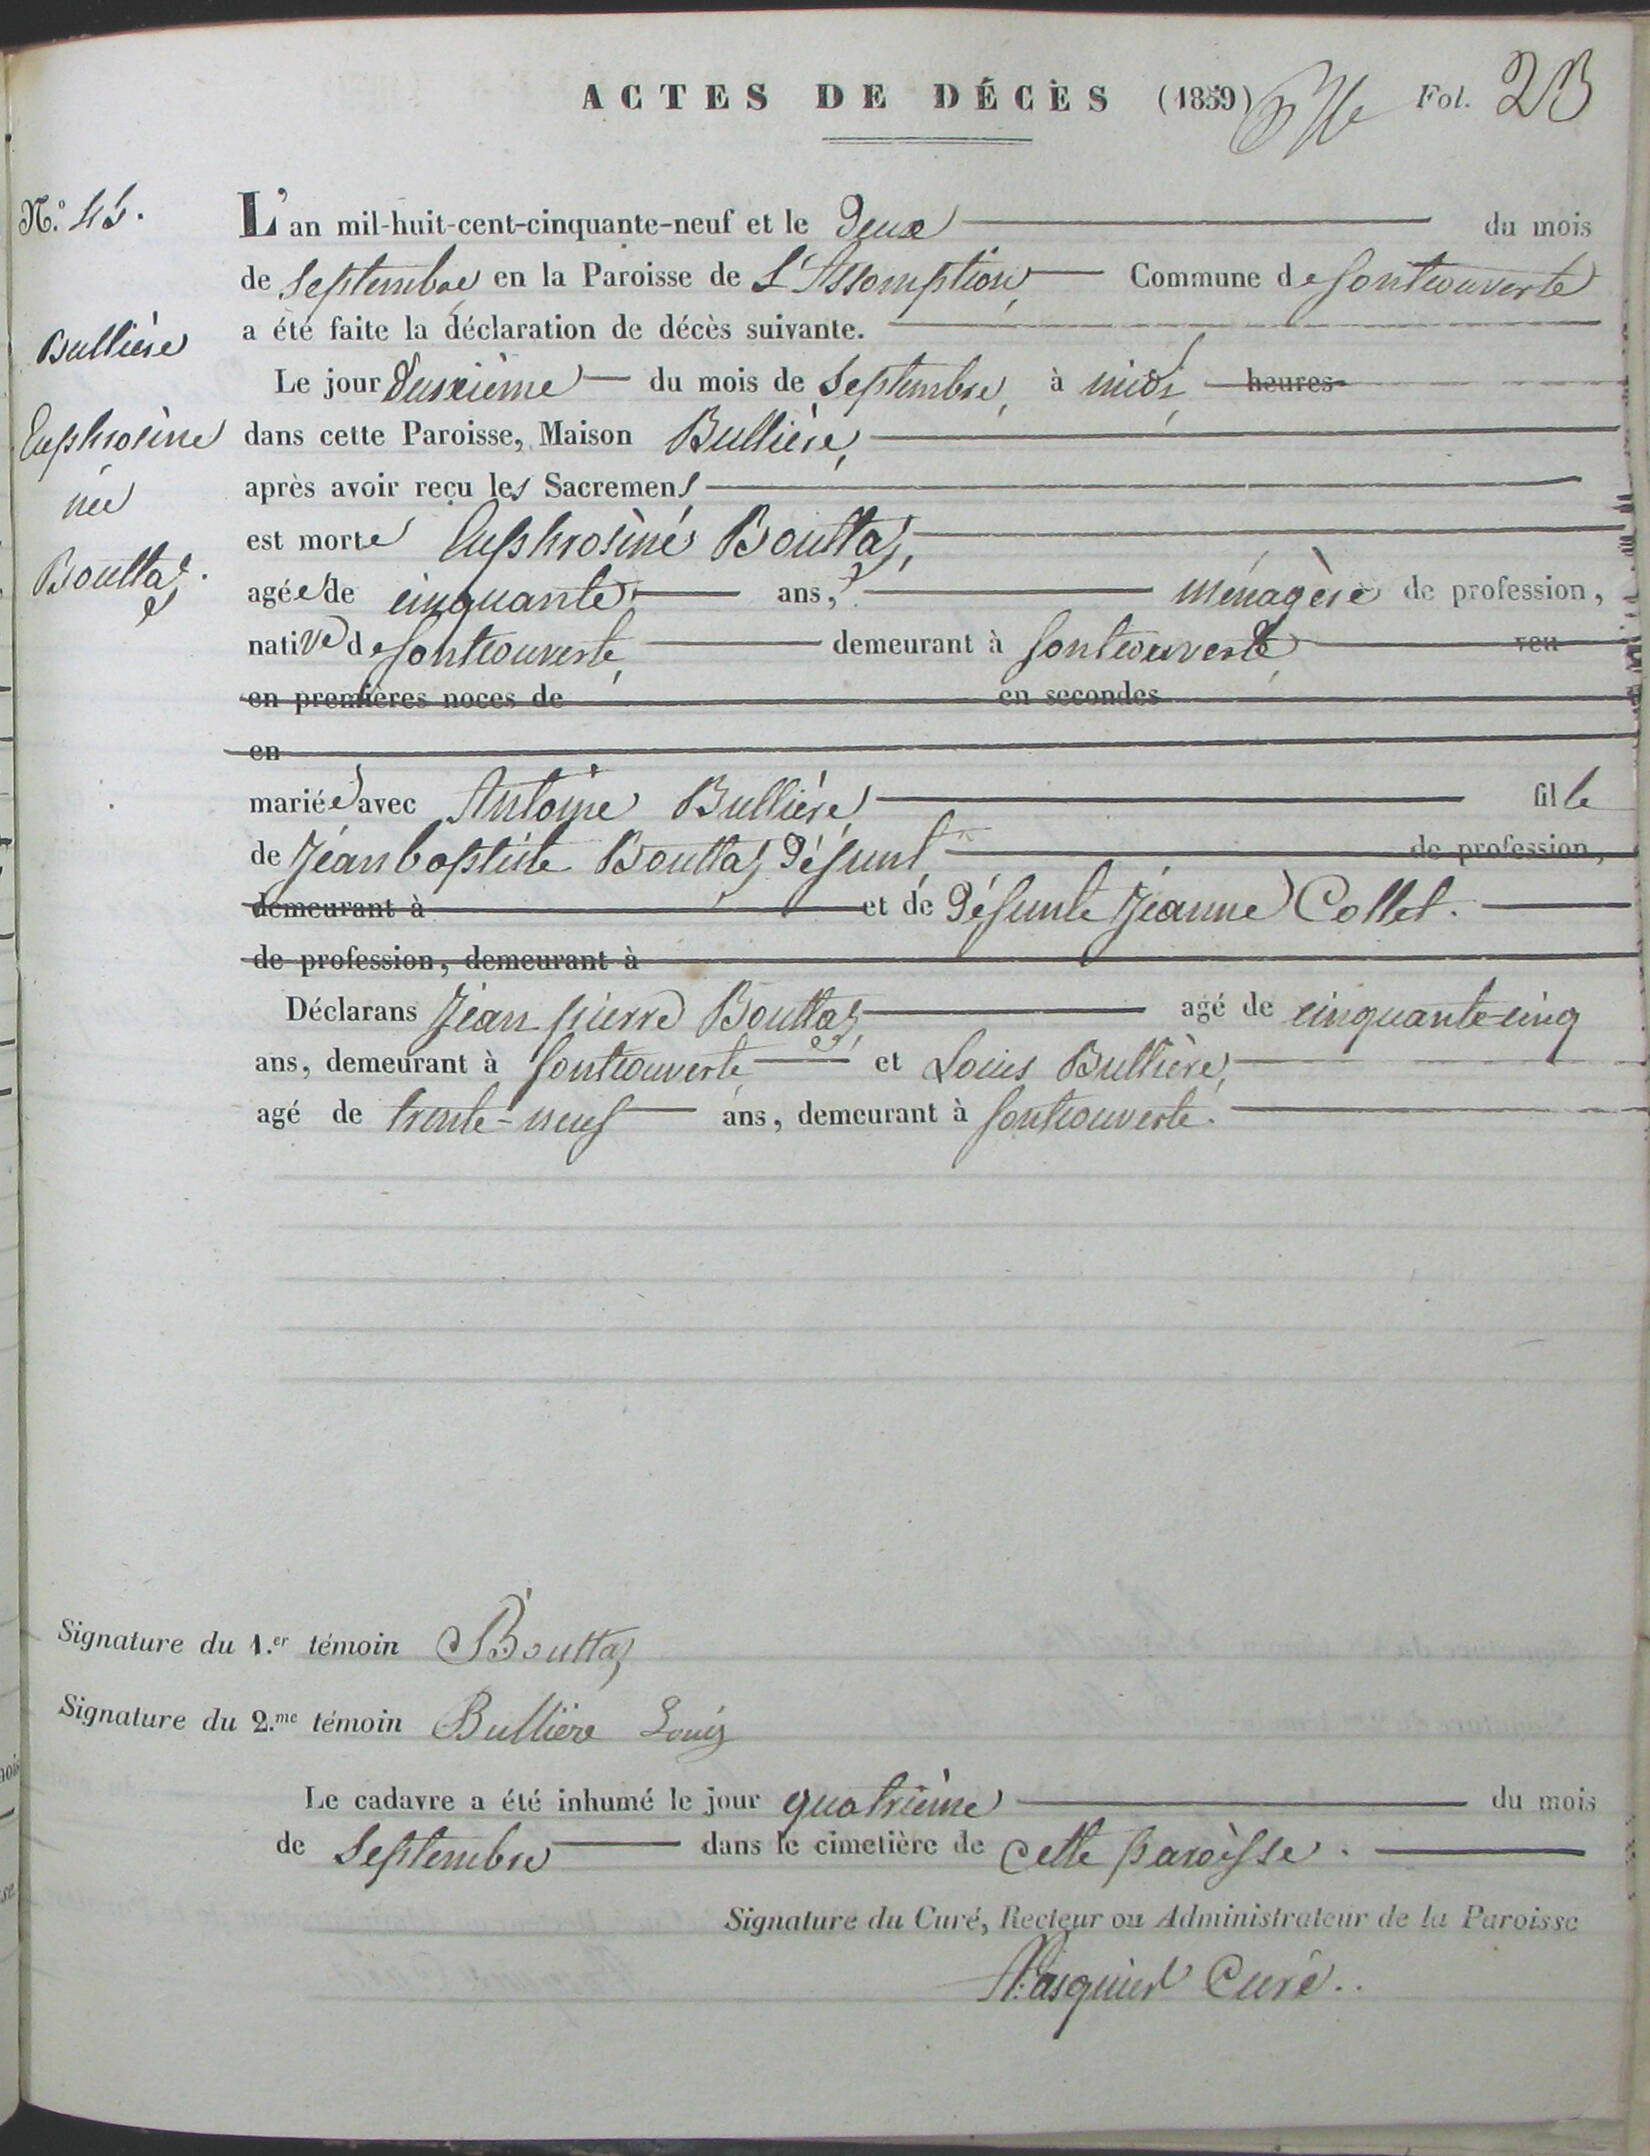 ACTES DE DÉCÈS (1859) Fol. 23
N.º 45.
L'an mil-huit-cent-cinquante-neuf et le deux du mois
de septembre en la Paroisse de L'Assomption Commune de fontcouverte
a été faite la déclaration de décès suivante.
Bullière
Le jour deuxième du mois de septembre, à midi heures
Euphrosine
dans cette Paroisse, Maison Bullière,
née
après avoir reçu les Sacremens
est morte Euphrosine Bouttaz,
Bouttaz.
agée de cinquante ans, ménagère de profession,
native de fontcouverte, demeurant à fontcouverte veu
en premières noces de en secondes
en
mariée avec Antoine Bullière, fille
de Jean baptiste Bouttaz défunt, de profession,
demeurant à et de défunte Jeanne Collet.
de profession, demeurant à
Déclarans Jean pierre Bouttaz, agé de cinquante-cinq
ans, demeurant à fontcouverte, et Louis Bullière,
agé de trente-neuf ans, demeurant à fontcouverte.
Signature du 1.er témoin Bouttaz
Signature du 2.me témoin Bullière Louis
Le cadavre a été inhumé le jour quatrième du mois
de septembre dans le cimetière de cette paroisse.
Signature du Curé, Recteur ou Administrateur de la Paroisse
Pasquier Curé..